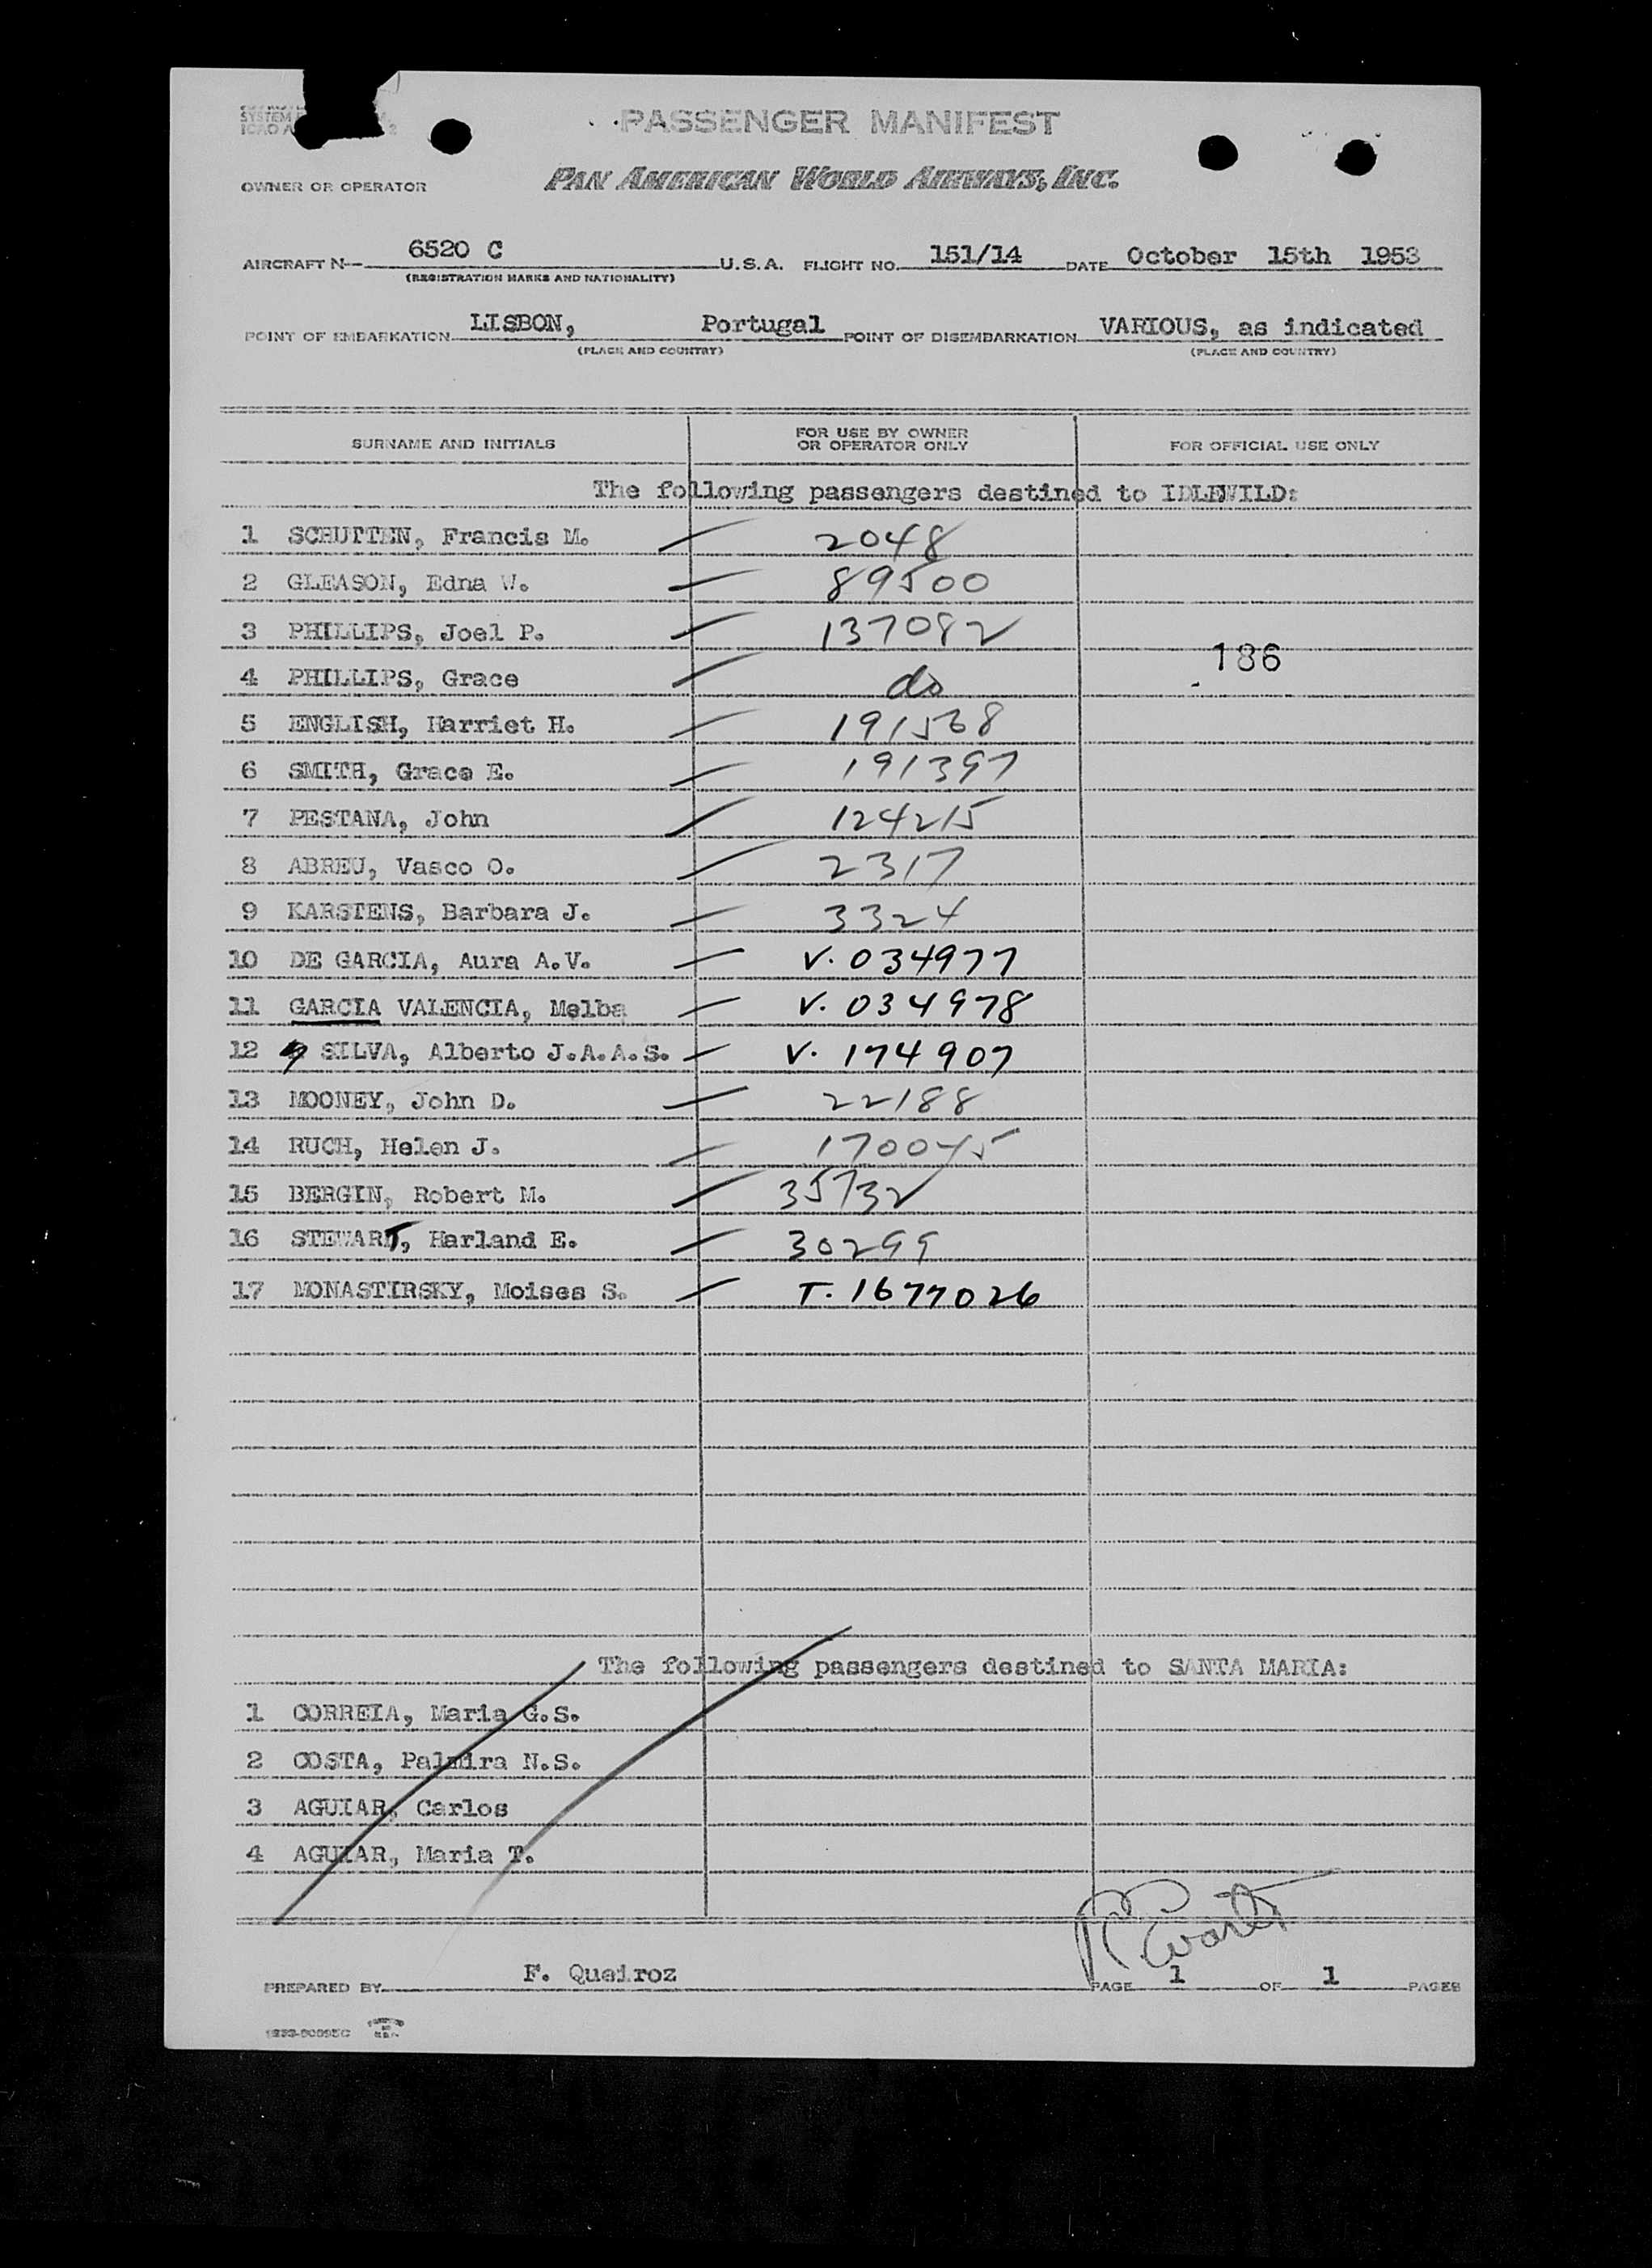 SYSTEM
ICAO A 2
PASSENGER MANIFEST
OWNER OR OPERATOR PAN AMERICAN WORLD AIRWAYS, INC.
AIRCRAFT N- 6520 C U.S.A. FLIGHT NO. 151/14 DATE October 15th 1953
(REGISTRATION MARKS AND NATIONALITY)
POINT OF EMBARKATION LISBON, Portugal POINT OF DISEMBARKATION VARIOUS, as indicated
(PLACE AND COUNTRY) (PLACE AND COUNTRY)
SURNAME AND INITIALS FOR USE BY OWNER OR OPERATOR ONLY FOR OFFICIAL USE ONLY
The following passengers destined to IDLEWILD:
1 SCHUTTEN, Francis M. 2048
2 GLEASON, Edna W. 89500
3 PHILLIPS, Joel P. 137082
186
4 PHILLIPS, Grace do
5 ENGLISH, Harriet H. 191538
6 SMITH, Grace E. 191397
7 PESTANA, John 124215
8 ABREU, Vasco O. 2317
9 KARSTENS, Barbara J. 3324
10 DE GARCIA, Aura A.V. V. 034977
11 GARCIA VALENCIA, Melba V. 034978
12 SILVA, Alberto J.A.A.S. V. 174907
13 MOONEY, John D. 22188
14 RUCH, Helen J. 170045
15 BERGIN, Robert M. 35732
16 STEWART, Harland E. 30299
17 MONASTIRSKY, Moises S. T. 1677026
The following passengers destined to SANTA MARIA:
1 CORREIA, Maria G.S.
2 COSTA, Palmira N.S.
3 AGUIAR, Carlos
4 AGUIAR, Maria T.
PREPARED BY F. Queiroz PAGE 1 OF 1 PAGES